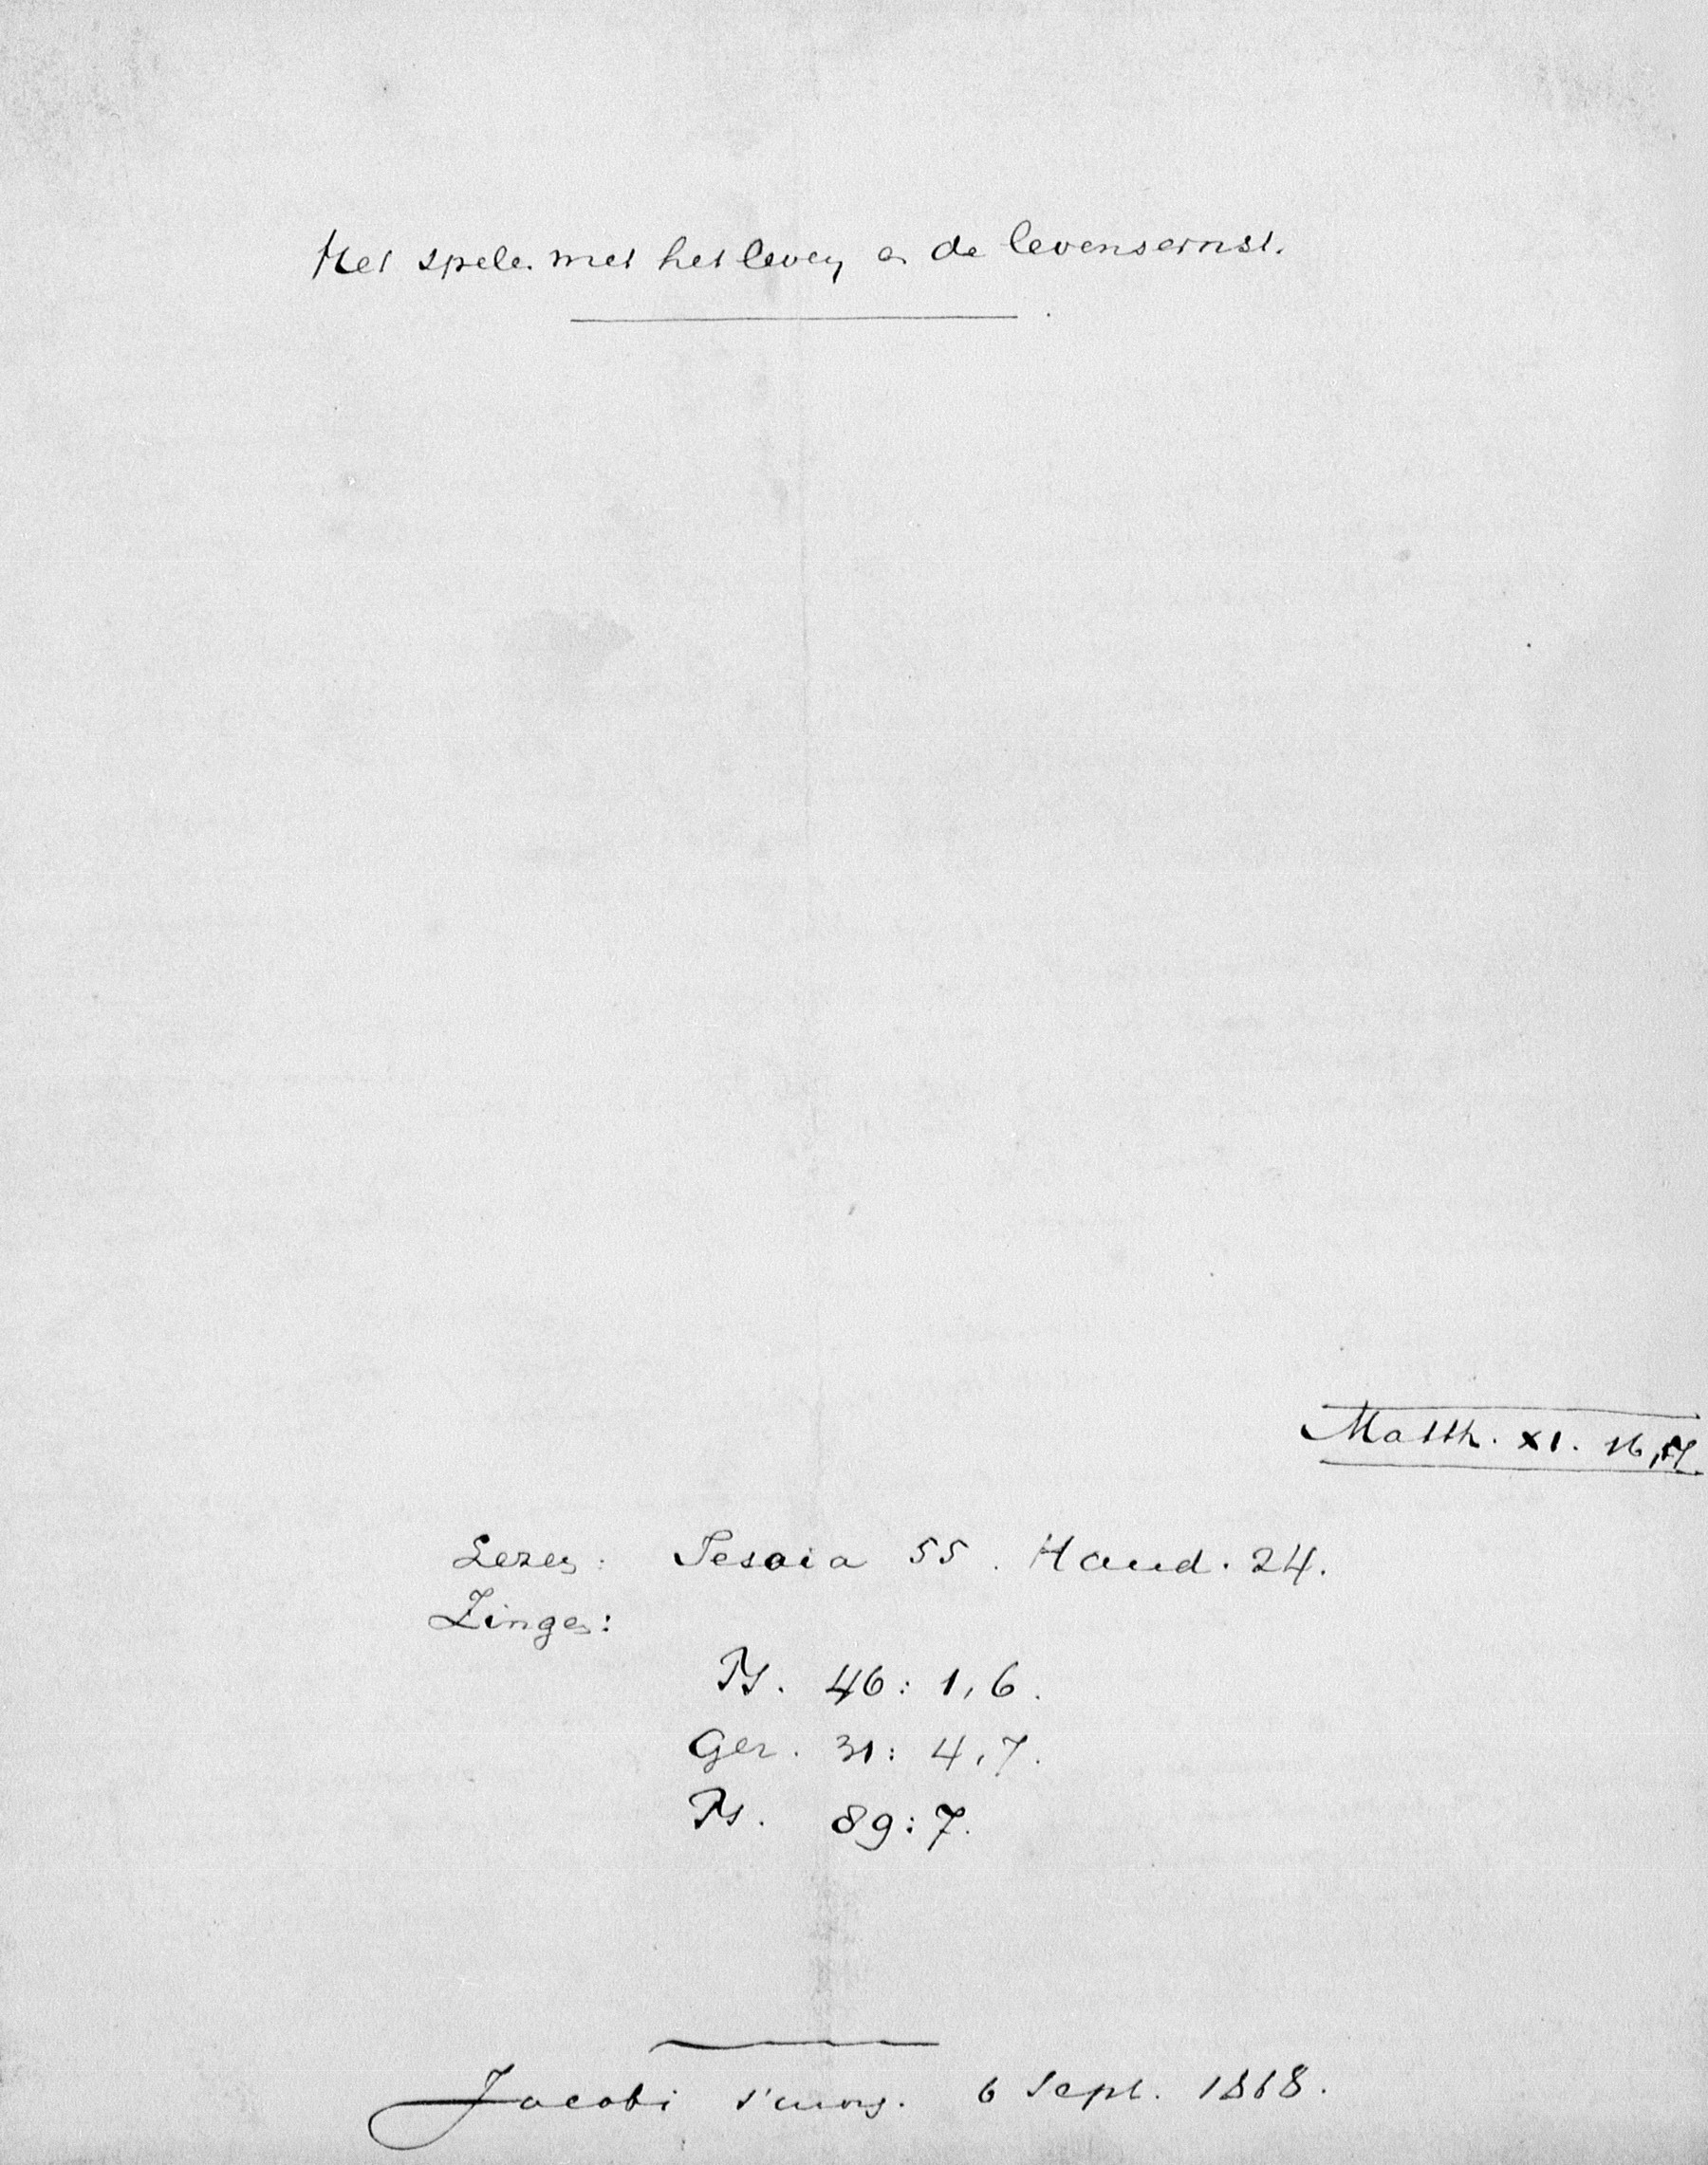 Het spelen met het leven en de levensernst.
Matth. XI. 16, 17.
Lezen: Jesaia 55. Hand. 24.
Zingen:
Ps. 46: 1, 6.
Gez. 31: 4, 7.
Ps. 89: 7.
Jacobi s'morg. 6 Sept. 1868.